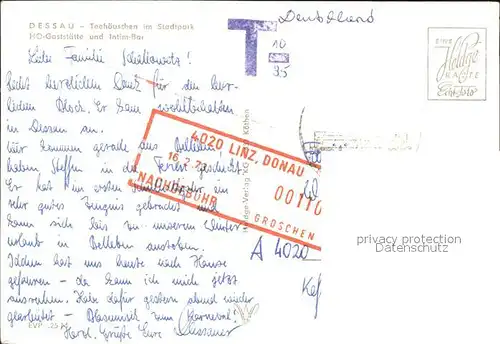 DESSAU – Teehäuschen im Stadtpark
HO-Gaststätte und Intim-Bar
Deutschland
T
10
35
EINE
Heldge
KARTE
Echt-Foto
Liebe Familie
Recht herzlichen Dank für den
Block. Er kam wohlbehalten
in Dessau an.
Wir kommen gerade aus Belleben
haben Steffen in die Ferien geschickt.
Er hat im ersten Schulhalbjahr ein
sehr gutes Zeugnis gebracht und
kann sich bis zu unserem Winter-
urlaub in Belleben austoben.
hat uns heute nach Hause
gefahren – da kann ich mich jetzt
ausruhen. Habe dafür gestern abend wieder
gearbeitet – Blasmusik zum Karneval!
Herzl. Grüße Eure Dessauer
EVP
4020 LINZ, DONAU
16. 2. 7
NACHGEBÜHR
GROSCHEN
0011
Heldge-Verlag KG Köthen
A 4020
privacy protection
Datenschutz